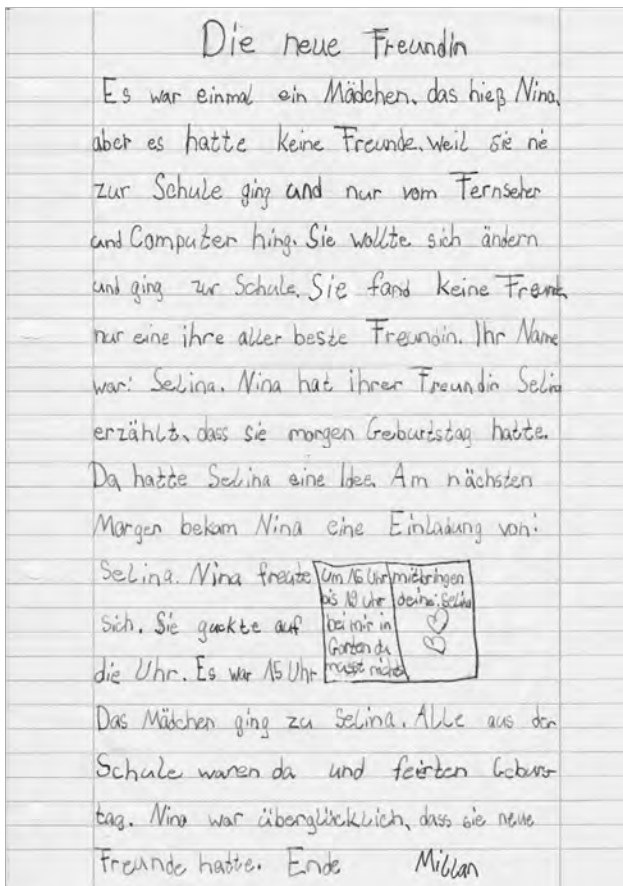 Die neue Freundin
Es war einmal ein Mädchen, das hieß Nina,
aber es hatte keine Freunde, weil sie nie
zur Schule ging und nur vom Fernseher
und Computer hing. Sie wollte sich ändern
und ging zur Schule. Sie fand keine Freunde,
nur eine ihre aller beste Freundin. Ihr Name
war: Selina. Nina hat ihrer Freundin Selina
erzählt, dass sie morgen Geburtstag hatte.
Da hatte Selina eine Idee. Am nächsten
Morgen bekam Nina eine Einladung von:
Selina. Nina freute
sich. Sie guckte auf
die Uhr. Es war 15 Uhr
Um 16 Uhr
bis 19 Uhr
bei mir in
Garten du
musst nichts
mitbringen
deine: Selina
Das Mädchen ging zu Selina. Alle aus der
Schule waren da und feierten Geburs-
tag. Nina war überglücklich, dass sie neue
Freunde hatte. Ende Millan